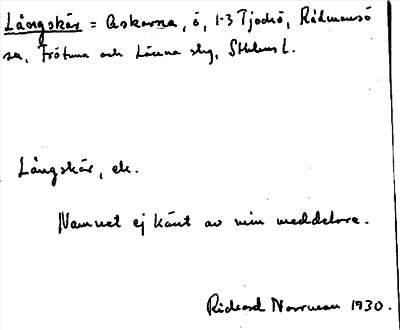 Långskär = Askarna, ö, 1-3 Tjockö, Rådmansö
sn, Frötuna och Länna slg, Sthlms l.
Långskär, ek.
Namnet ej känt av min meddelare.
Rickard Norrman 1930.